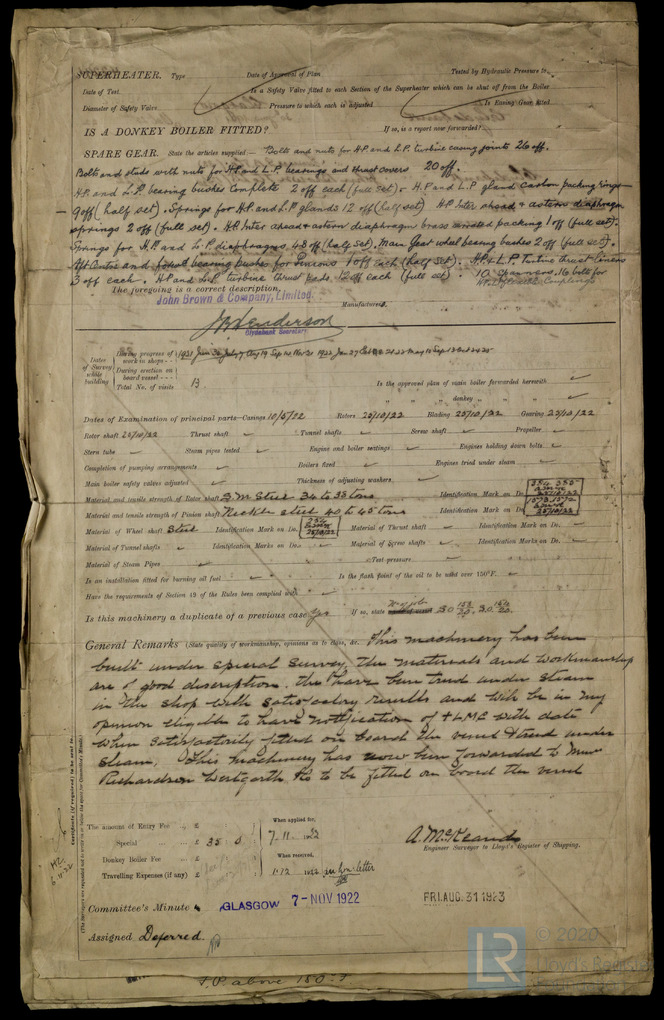 SUPERHEATER. Type Date of Approval of Plan Tested by Hydraulic Pressure to
Date of Test Is a Safety Valve fitted to each Section of the Superheater which can be shut off from the Boiler
Diameter of Safety Valve Pressure to which each is adjusted Is Easing Gear fitted
IS A DONKEY BOILER FITTED? If so, is a report now forwarded?
SPARE GEAR. State the articles supplied:— Bolts and nuts for H.P. and L.P. turbine casing joints 26 off.
Bolts and studs with nuts for H.P. and L.P. bearings and thrust covers 20 off.
H.P. and L.P. bearing bushes complete 2 off each (full set) & H.P. and L.P. gland carbon packing rings
9 off (half set). Springs for H.P. and L.P. glands 12 off (half set) H.P. Inter ahead & astern diaphragm
springs 2 off (full set). H.P. Inter ahead & astern diaphragm brass packing 1 off (full set).
Springs for H.P. and L.P. diaphragms 48 off (half set). Main Gear wheel bearing bushes 2 off (full set).
Aft Centre and bearing bushes for Pinions 1 off each (half set). H.P. & L.P. Turbine thrust liners
3 off each. H.P. and L.P. turbine thrust pads 12 off each (full set). 10 spanners. 16 bolts for
The foregoing is a correct description, H.P. & L.P. flexible Couplings
John Brown & Company, Limited.
Manufacturers.
Clydebank Secretary
Dates of Survey while building
During progress of work in shops
During erection on board vessel
Total No. of visits 13
Is the approved plan of main boiler forwarded herewith
" " " donkey " " "
Dates of Examination of principal parts—Casings 10/5/22 Rotors 25/10/22 Blading 25/10/22 Gearing 25/10/22
Rotor shaft 25/10/22 Thrust shaft Tunnel shafts Screw shaft Propeller
Stern tube Steam pipes tested Engine and boiler seatings Engines holding down bolts
Completion of pumping arrangements Boilers fixed Engines tried under steam
Main boiler safety valves adjusted Thickness of adjusting washers
Material and tensile strength of Rotor shaft S.M. Steel 34 to 38 tons Identification Mark on Do.
Material and tensile strength of Pinion shaft Nickle steel 40 to 45 tons Identification Mark on Do.
Material of Wheel shaft Steel Identification Mark on Do. Material of Thrust shaft Identification Mark on Do.
Material of Tunnel shafts Identification Marks on Do. Material of Screw shafts Identification Marks on Do.
Material of Steam Pipes Test pressure
Is an installation fitted for burning oil fuel Is the flash point of the oil to be used over 150°F.
Have the requirements of Section 49 of the Rules been complied with
Is this machinery a duplicate of a previous case Yes If so, state
General Remarks (State quality of workmanship, opinions as to class, &c. This machinery has been
built under special survey, the materials and workmanship
are of good description. The have been tried under steam
in the shop with satisfactory results and will be in my
opinion eligible to have notification of + LMC with date
when satisfactorily fitted on board the vessel & tried under
steam. This machinery has now been forwarded to Messrs
Richardson Westgarth & Co to be fitted on board the vessel
Certificate (if required) to be sent to
(The Surveyors are requested not to write on or below the space for Committee's Minute.)
The amount of Entry Fee £ When applied for,
Special £ 35 0 7.11.1922
Donkey Boiler Fee £ When received,
Travelling Expenses (if any) £ 1.12.1922
A. McKeand
Engineer Surveyor to Lloyd's Register of Shipping.
Committee's Minute GLASGOW 7-NOV 1922 FRI. AUG. 31 1923
Assigned Deferred.
F.P. above 150°F
LR
2020
Lloyd's Register